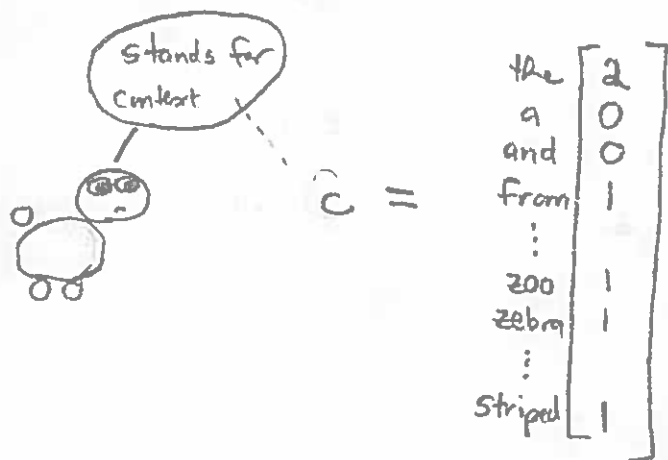 Stands for
Context
c =
the 2
a 0
and 0
from 1
⋮
zoo 1
zebra 1
⋮
striped 1